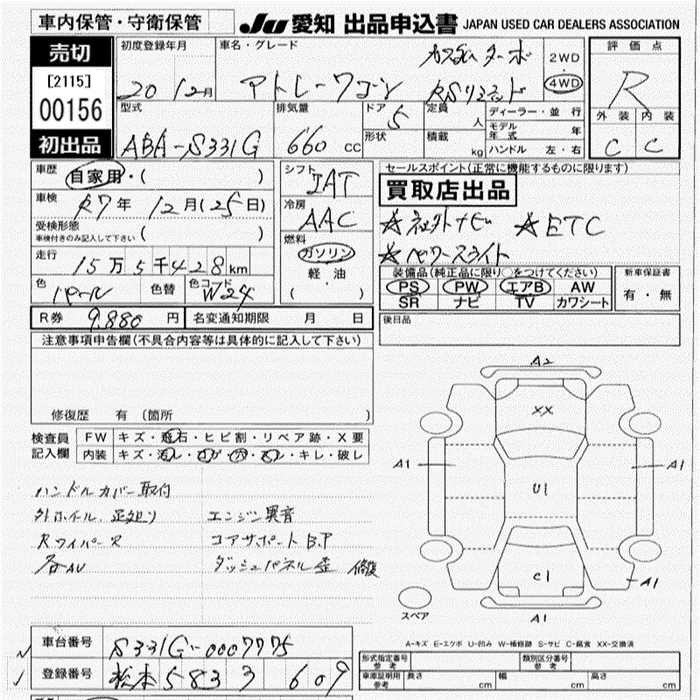 車内保管・守衛保管
JU 愛知 出品申込書 JAPAN USED CAR DEALERS ASSOCIATION
売切
[2115]
00156
初出品
初度登録年月
20 12月
車名・グレード
カスタムターボ
アトレーワゴン RSリミテッド
2WD
4WD
評価点
R
外装 内装
C C
型式
ABA-S331G
排気量
660 cc
ドア 5
形状
定員 人
積載 kg
ディーラー・並行
モデル年式 年
ハンドル 左・右
車歴 自家用・( )
車検 R7年 12月(25日)
受検形態
車検付きのみ記入して下さい ( )
走行
15万5千428km
色 パール 色替 色コード W24
シフト
IAT
冷房
AAC
燃料
ガソリン
軽油
( )
セールスポイント(正常に機能するものに限ります)
買取店出品
☆社外ナビ ☆ETC
☆パワースライト
装備品(純正品に限り○をつけてください)
PS PW エアB AW
SR ナビ TV カワシート
新車保証書
有・無
R券 9,880 円 名変通知期限 月 日
後日品
注意事項申告欄(不具合内容等は具体的に記入して下さい)
修復歴 有(箇所 )
検査員記入欄
FW キズ・飛石・ヒビ割・リペア跡・X要
内装 キズ・汚レ・コゲ・穴・スレ・キレ・破レ
ハンドルカバー取付
外ホイル、
エンジン異音
Rワイパーヌ
コアサポートB.P
各AU
ダッシュパネル歪 修復
A2
XX
A1
A1
U1
C1
A1
A1
スペア
A-キズ E-エクボ U-凹み W-補修跡 S-サビ C-腐食 XX-交換済
車台番号 S331G-0007775
登録番号 松本 583 609
形式指定番号 参考
類別区分番号 参考
車庫証明用 参考 長さ cm 幅 cm 高さ cm